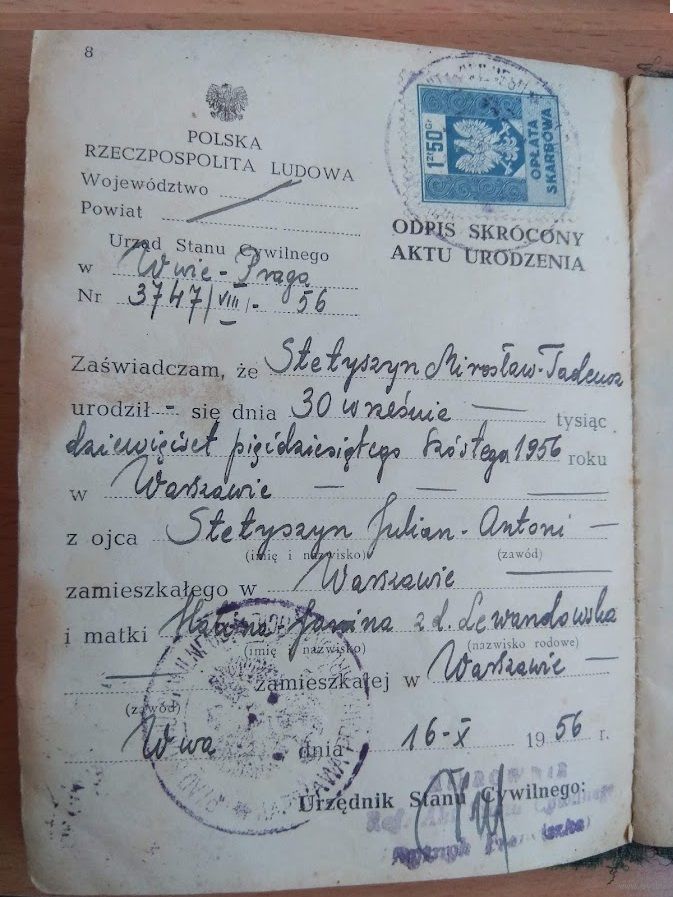 8
POLSKA
RZECZPOSPOLITA LUDOWA
Województwo
Powiat
Urząd Stanu Cywilnego
w W-wie-Praga
Nr 3747/VIII/- 56
1 zł 50 Gr
OPŁATA
SKARBOWA
ODPIS SKRÓCONY
AKTU URODZENIA
Zaświadczam, że Stetyszyn Mirosław-Tadeusz
urodził - się dnia 30 września — tysiąc
dziewięćset pięćdziesiątego szóstego 1956 roku
w Warszawie — — —
z ojca Stetyszyn Julian-Antoni —
(imię i nazwisko) (zawód)
zamieszkałego w Warszawie —
i matki Halina-Janina z d. Lewandowska
(imię i nazwisko) (nazwisko rodowe)
— zamieszkałej w Warszawie —
(zawód)
W-wa dnia 16-X 1956 r.
Urzędnik Stanu Cywilnego:
KIEROWNIK